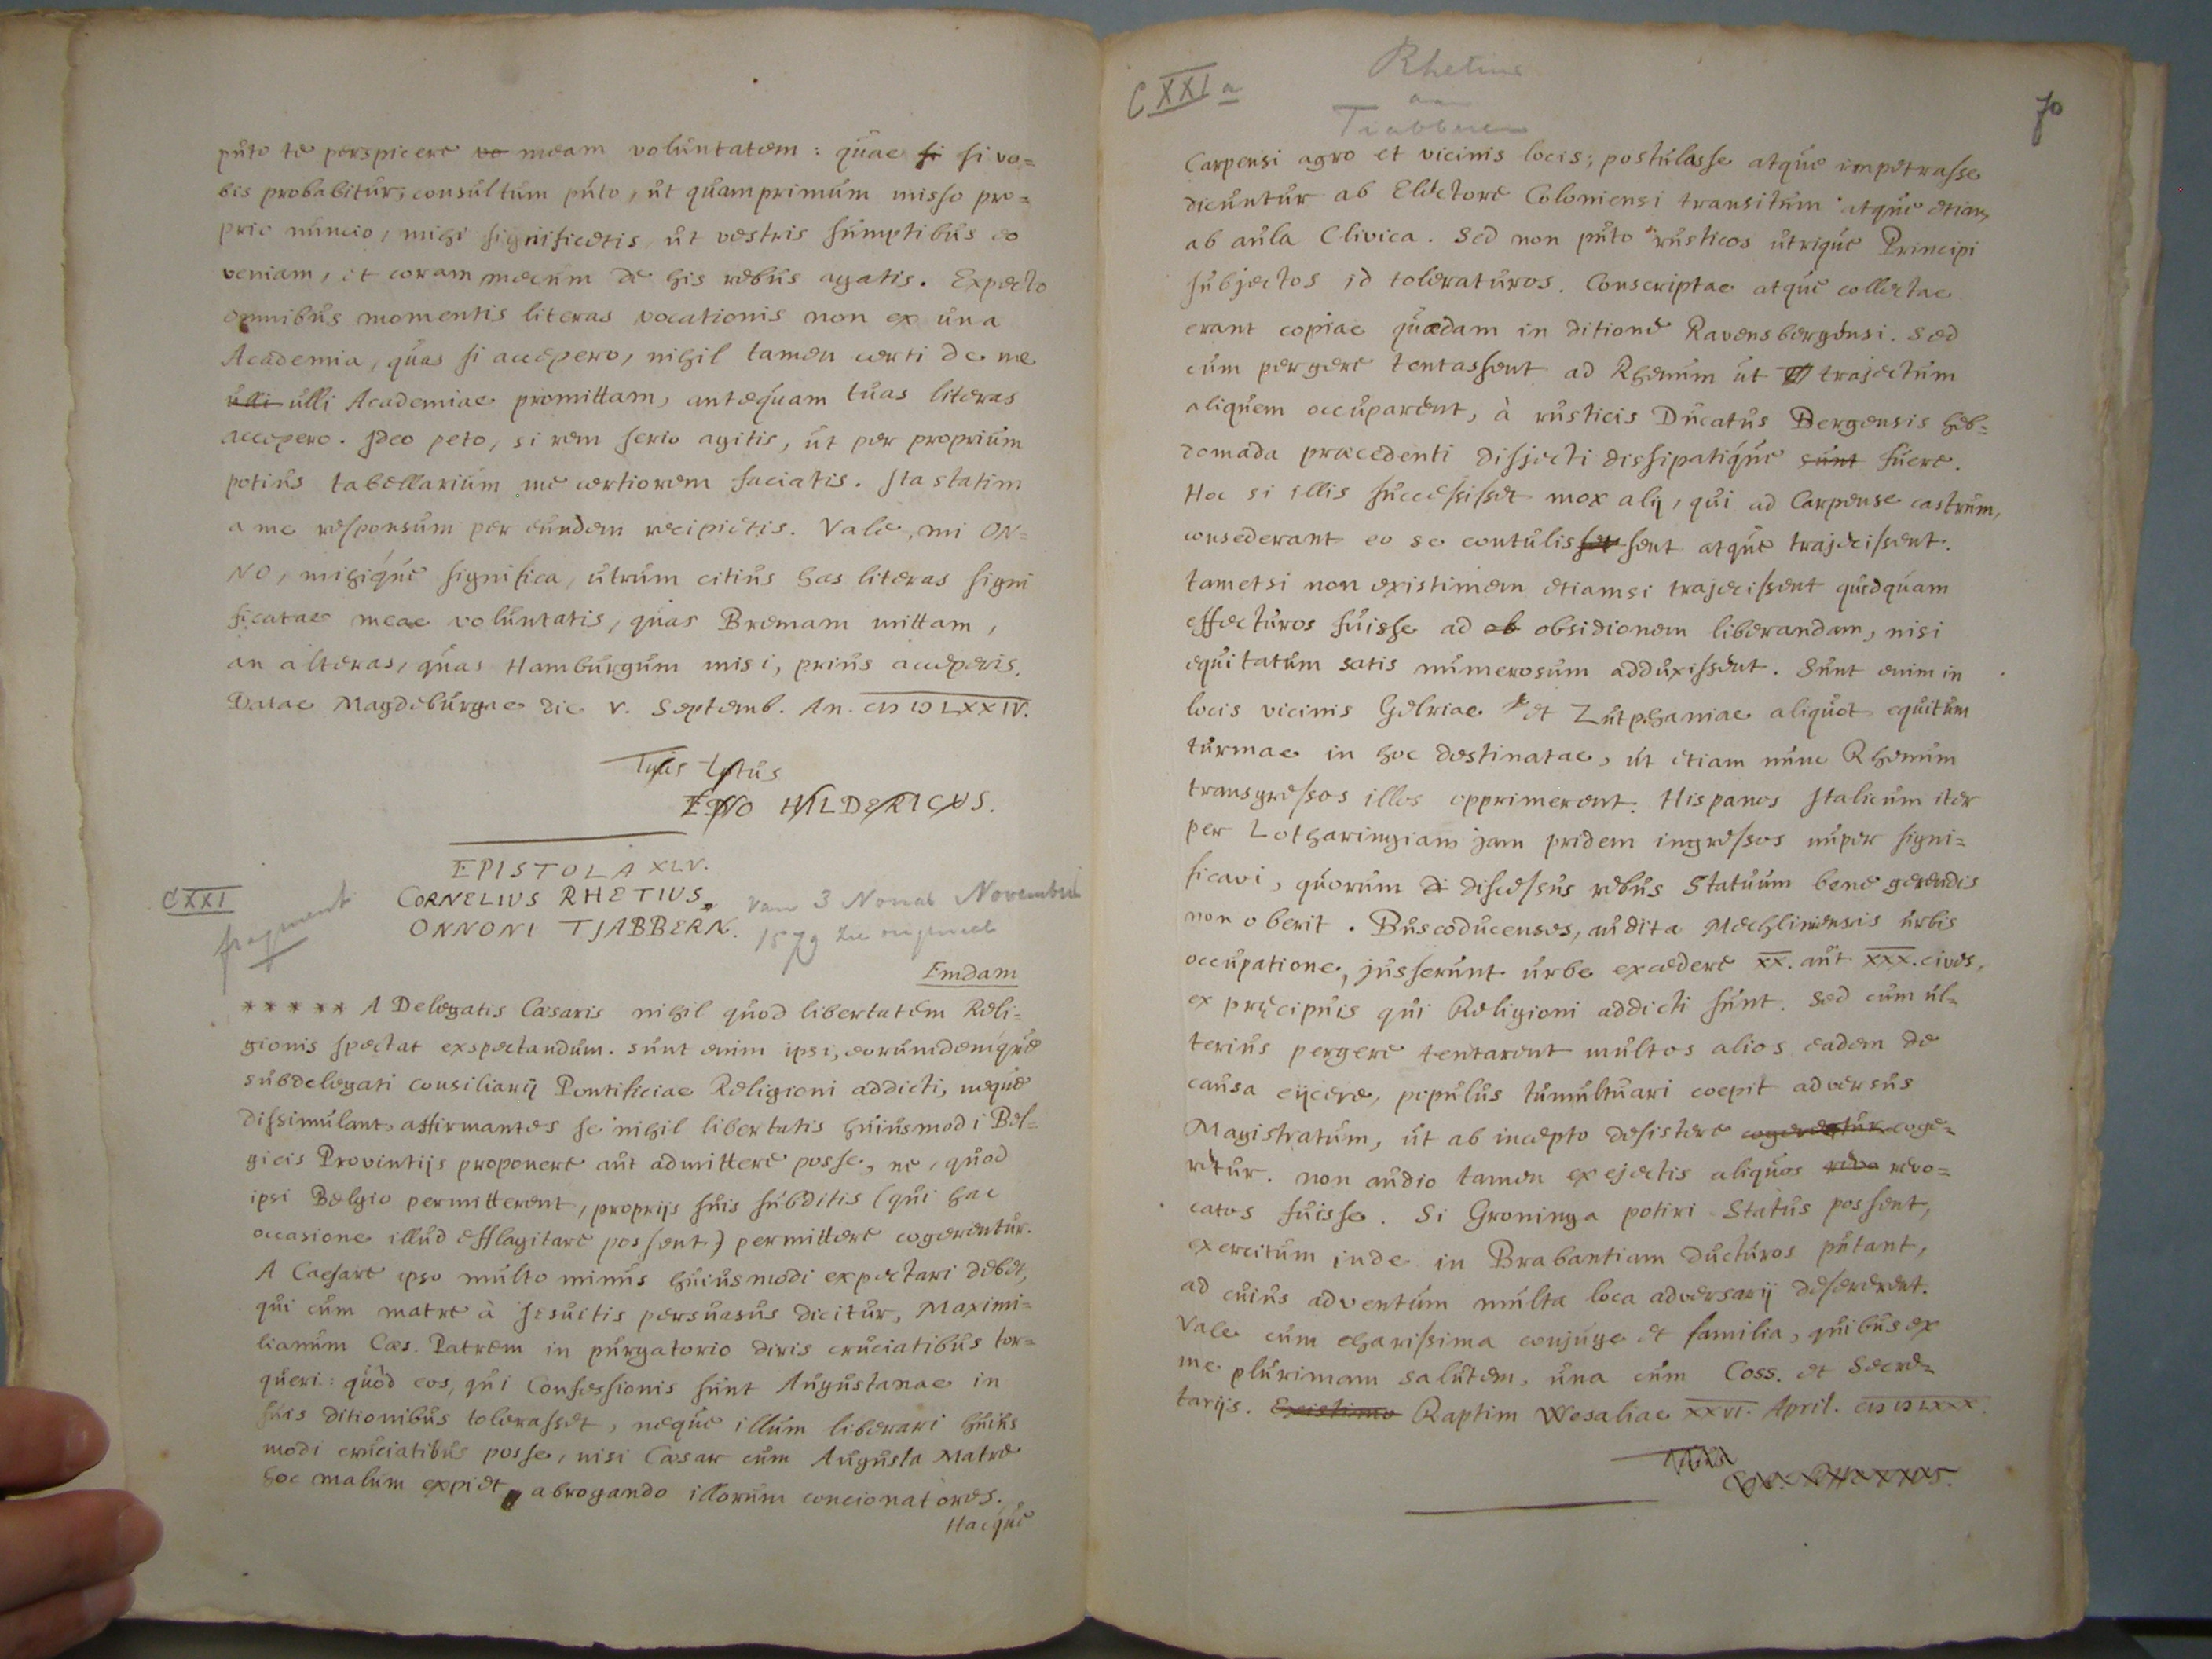 puto te perspicere vo meam voluntatem : quae si si vo=
bis probabitur; consultum puto, ut quamprimum misso pro=
prio nuncio, mihi significetis, ut vestris sumptibus eo
veniam, et coram mecum de his rebus agatis. Expecto
omnibus momentis literas vocationis non ex una
Academia, quas si accepero, nihil tamen certi de me
ulli ulli Academiae promittam, antequam tuas literas
accepero. Ideo peto, si rem serio agitis, ut per proprium
potius tabellarium me certiorem faciatis. Ita statim
a me responsum per eundem recipietis. Vale, mi ON=
NO, mihique significa, utrum citius has literas signi
ficatae meae voluntatis, quas Bremam mittam,
an alteras, quas Hamburgum misi, prius acceperis.
Datae Magdeburgae die V. Septemb. An. CIƆ IƆ LXXIV.
Tuus totus
EDO HILDERICUS.
EPISTOLA XLV.
CXXI
fragment
CORNELIUS RHETIUS
ONNONI TJABBERN.
van 3 Nonas Novembris
1579 zie origineel
Emdam
* * * * * A Delegatis Caesaris nihil quod libertatem Reli=
gionis spectat exspectandum. sunt enim ipsi, eorundemque
subdelegati consiliarij Pontificiae Religioni addicti, neque
dissimulant affirmantes se nihil libertatis huiusmodi Bel=
gicis Provintijs proponere aut admittere posse, ne, quod
ipsi Belgio permitterent, proprijs suis subditis (qui hac
occasione illud efflagitare possent) permittere cogerentur.
A Caesare ipso multo minus huiusmodi expectari debet,
qui cum matre à Jesuitis persuasus dicitur, Maximi=
lianum Caes. Patrem in purgatorio diris cruciatibus tor=
queri : quòd eos, qui Confessionis sunt Augustanae in
suis ditionibus tolerasset, neque illum liberari huius
modi cruciatibus posse, nisi Caesar cum Augusta Matre
hoc malum expiet, abrogando illorum concionatores.
Hacque
CXXI a
Rhetius
aan
Tjabbern
70
Carpensi agro et vicinis locis; postulasse atque impetrasse
dicuntur ab Electore Coloniensi transitum atque etiam
ab aula Clivica. Sed non puto rusticos utrique Principi
subjectos id toleraturos. Conscriptae atque collectae
erant copiae quaedam in ditione Ravensbergensi. Sed
cum pergere tentassent ad Rhenum ut trajectum
aliquem occuparent, à rusticis Ducatus Bergensis heb=
domada praecedenti disjecti dissipatique sunt fuere.
Hoc si illis successisset mox alij, qui ad Carpense castrum,
consederant eo se contulis set sent atque trajecissent.
tametsi non existimem etiamsi trajecissent quidquam
effecturos fuisse ad ob obsidionem liberandam, nisi
equitatum satis numerosum adduxissent. Sunt enim in
locis vicinis Gelriae et Zutphaniae aliquot equitum
turmae in hoc destinatae, ut etiam nunc Rhenum
transgressos illos opprimerent. Hispanos Italicum iter
per Lotharingiam jam pridem ingressos nuper signi=
ficavi, quorum di discessus rebus Statuum bene gerendis
non oberit. Buscoducenses, audita Mechliniensis urbis
occupatione, jusserunt urbe excedere XX. aut XXX. cives,
ex pręcipuis qui Religioni addicti sunt. Sed cum ul=
terius pergere tentarent multos alios eadem de
causa eijcere, populus tumultuari coepit adversus
Magistratum, ut ab incepto desistere cogeretur coge=
retur. non audio tamen ex ejectis aliquos revo revo=
catos fuisse. Si Groninga potiri Status possent,
exercitum inde in Brabantiam ducturos putant,
ad cuius adventum multa loca adversarij desererent.
Vale cum charissima conjuge et familia, quibus ex
me plurimam salutem, una cum Coss. et Secre=
tarijs. Existimo Raptim Wesaliae XXVI. April. CIƆ IƆ LXXX.